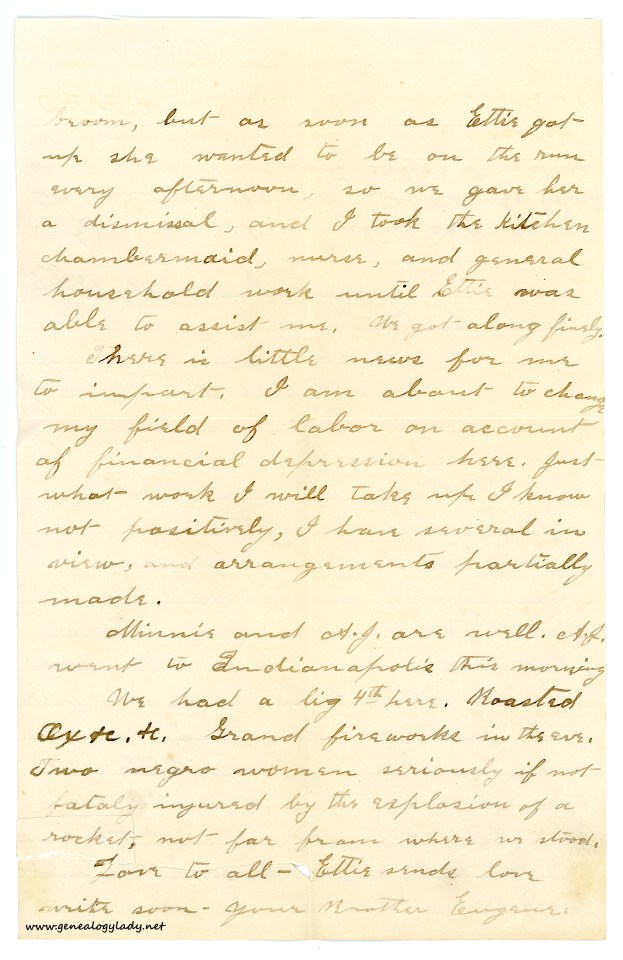 broom, but as soon as Ettie got
up she wanted to be on the run
every afternoon, so we gave her
a dismissal, and I took the Kitchen
chambermaid, nurse, and general
household work until Ettie was
able to assist me. We got along finely.
There is little news for me
to impart. I am about to change
my field of labor on account
of financial depression here. Just
what work I will take up I know
not positively, I have several in
view, and arrangements partially
made.
Minnie and A.J. are well. A.J.
went to Indianapolis this morning
We had a big 4th here. Roasted
Ox &c. &c. Grand fireworks in the eve.
Two negro women seriously if not
fataly injured by the explosion of a
rocket, not far from where we stood.
Love to all – Ettie sends love
write soon – Your Brother Eugene.
www.genealogylady.net